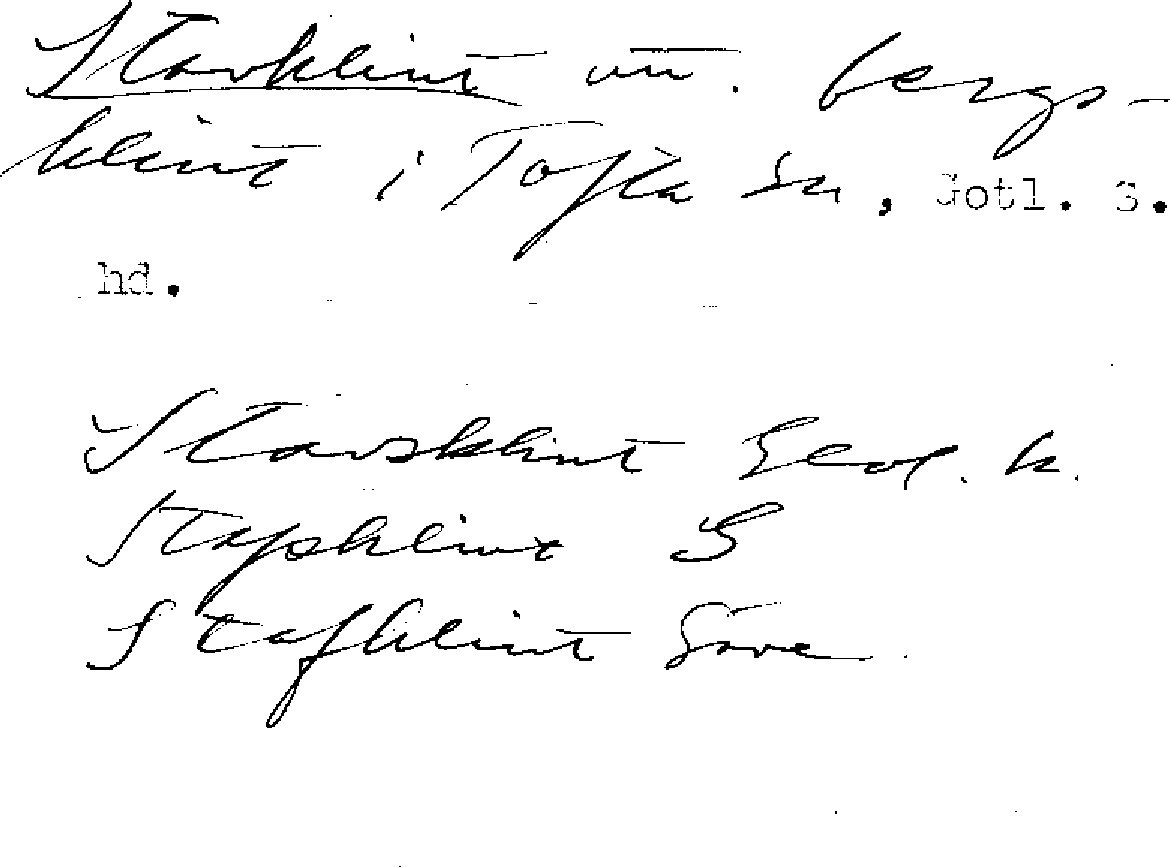 Stavklint utt. bergs-
klint i Tofta sn, Gotl. S.
hd.
Stavsklint Geol. k.
Stafsklint S
Stafklint Säve